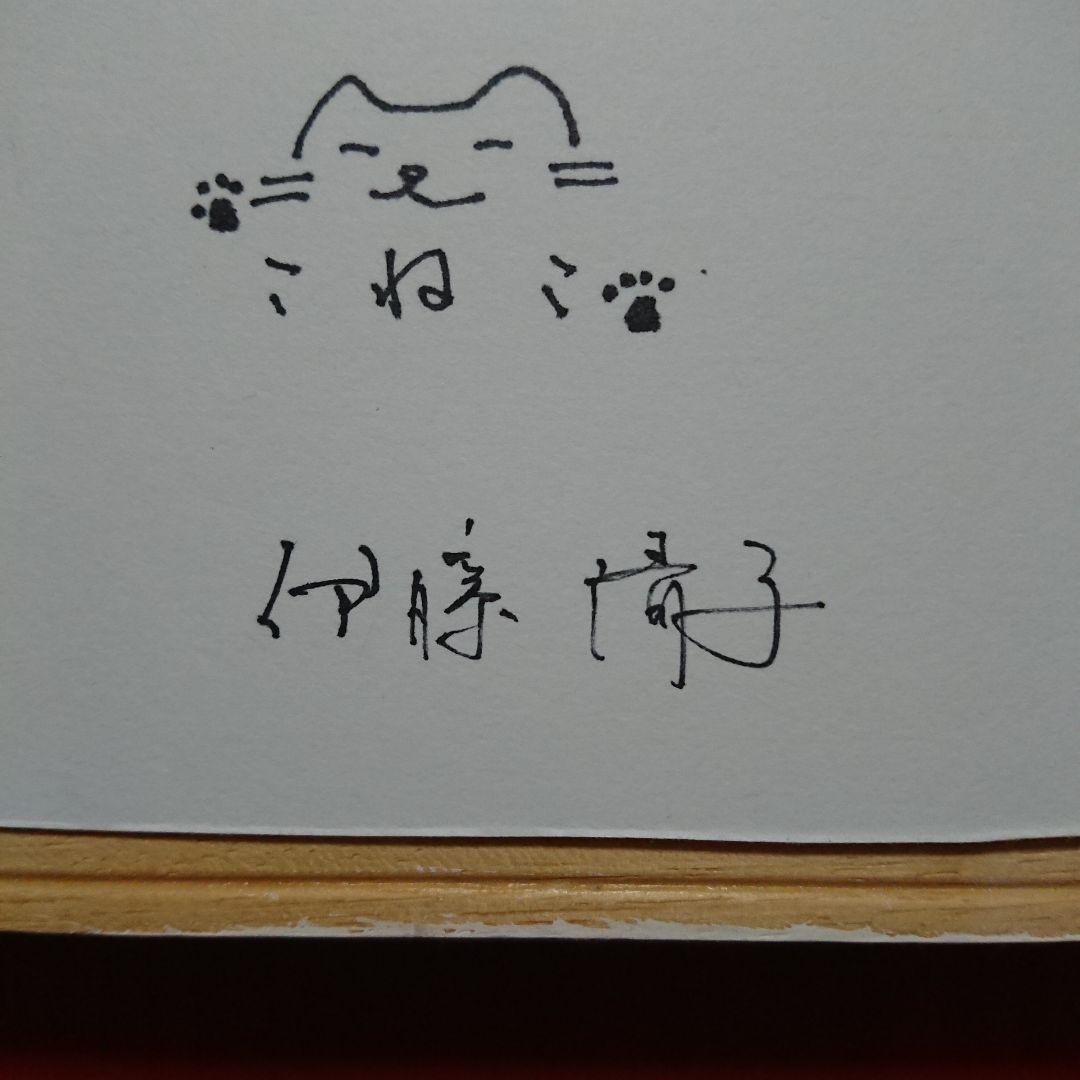 こねこ
伊藤 蘭子